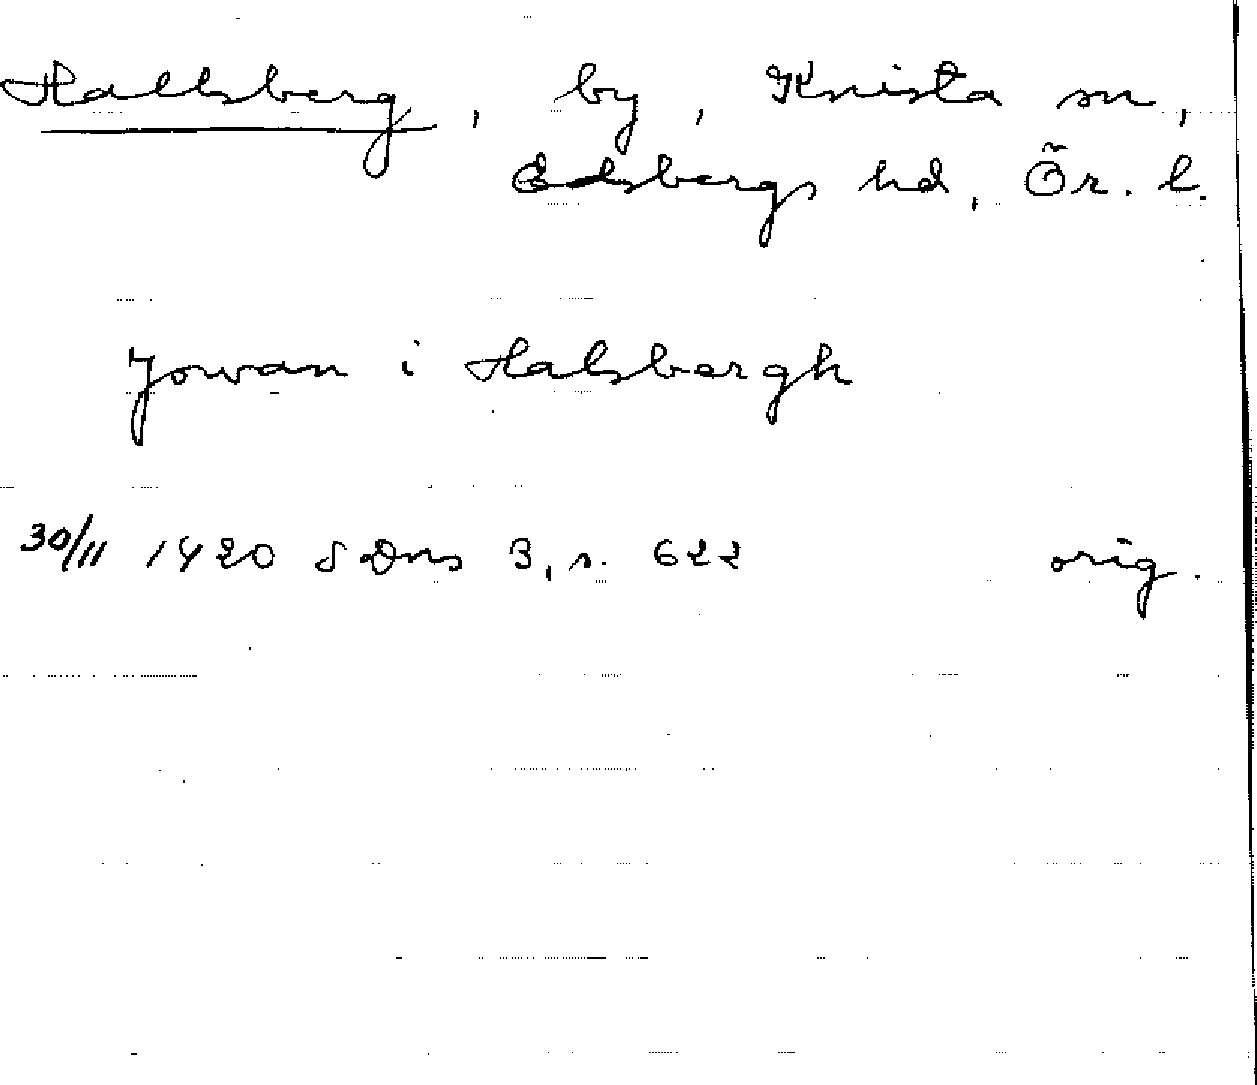 Hallsberg, by, Knista sn,
Edsbergs hd, Ör. l.
Jowan i Halsbergh
30/11 1420 SDns 3, s. 622 orig.